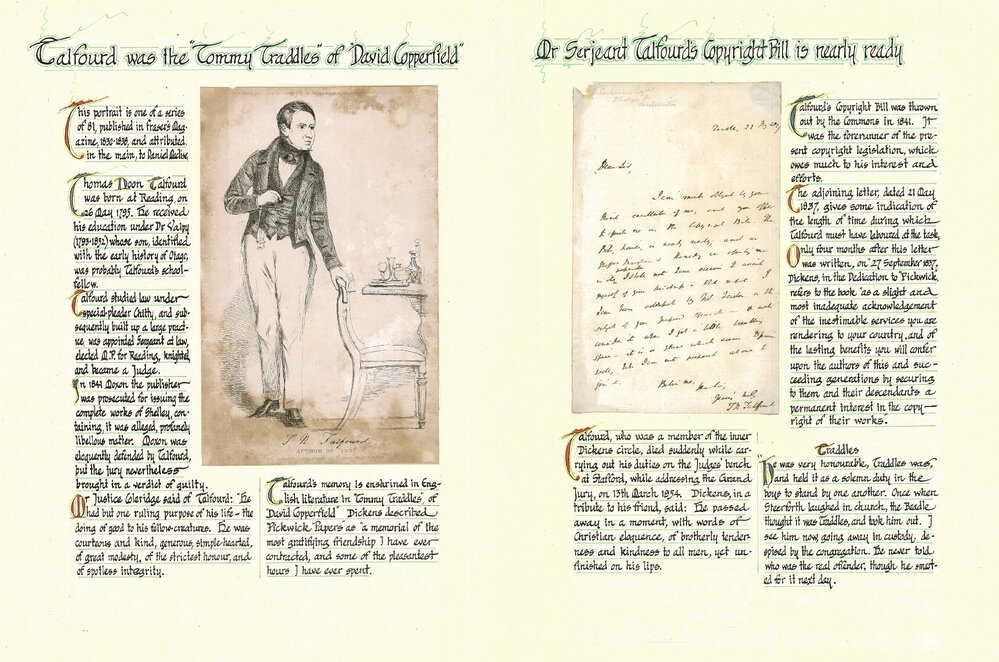 Talfourd was the "Tommy Traddles" of "David Copperfield"
This portrait is one of a series
of 81, published in Fraser's Mag-
azine, 1830-1838, and attributed,
in the main, to Daniel Maclise.
Thomas Noon Talfourd
was born at Reading, on
26 May 1795. He received
his education under Dr Valpy
whose son, identified
with the early history of Otago,
was probably Talfourd's school-
fellow.
Talfourd studied law under
special-pleader Chitty, and sub-
sequently built up a large pract-
ice, was appointed Sergeant at law,
elected M.P. for Reading, knighted,
and became a Judge.
In 1841 Moxon the publisher
was prosecuted for issuing the
complete works of Shelley, con-
taining, it was alleged, profanely
libellous matter. Moxon was
eloquently defended by Talfourd,
but the jury nevertheless
brought in a verdict of guilty.
Mr Justice Coleridge said of Talfourd: "He
had but one ruling purpose of his life - the
doing of good to his fellow-creatures. He was
courteous and kind, generous, simple-hearted,
of great modesty, of the strictest honour, and
of spotless integrity.
T. N. Talfourd
AUTHOR OF "ION."
Talfourd's memory is enshrined in Eng-
lish literature in "Tommy Traddles", of
"David Copperfield" Dickens described
Pickwick Papers as "a memorial of the
most gratifying friendship I have ever
contracted, and some of the pleasantest
hours I have ever spent.
Mr Serjeant Talfourd's Copyright Bill is nearly ready
Dear Sir,
I am much obliged by your
kind recollection of me, and your offer
to assist me in the Copyright Bill. The
Bill, however, is nearly ready, and as
T. N. Talfourd
Talfourd's Copyright Bill was thrown
out by the Commons in 1841. It
was the forerunner of the pre-
sent copyright legislation, which
owes much to his interest and
efforts.
The adjoining letter, dated 21 May
1837, gives some indication of
the length of time during which
Talfourd must have laboured at the task.
Only four months after this letter
was written, on "27 September 1837,
Dickens, in the Dedication to "Pickwick,
refers to the book "as a slight and
most inadequate acknowledgement
of the inestimable services you are
rendering to your country, and of
the lasting benefits you will confer
upon the authors of this and suc-
ceeding generations by securing
to them and their descendants a
permanent interest in the copy-
right of their works."
Talfourd, who was a member of the inner
Dickens circle, died suddenly while car-
rying out his duties on the Judges' bench
at Stafford, while addressing the Grand
Jury, on 13th March 1854. Dickens, in a
tribute to his friend, said: He passed
away in a moment, with words of
Christian eloquence, of brotherly tender-
ness and kindness to all men, yet un-
finished on his lips.
Traddles
He was very honourable, Traddles was,
and held it as a solemn duty in the
boys to stand by one another. Once when
Steerforth laughed in church, the Beadle
thought it was Traddles, and took him out. I
see him now, going away in custody, de-
spised by the congregation. He never told
who was the real offender, though he smart-
ed for it next day.